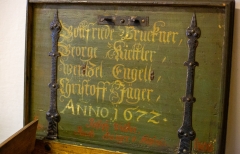 Gottfriede Bruckner,
George Küttler,
Weiddel Engelt
Christoff Jäger,
ANNO 1672.